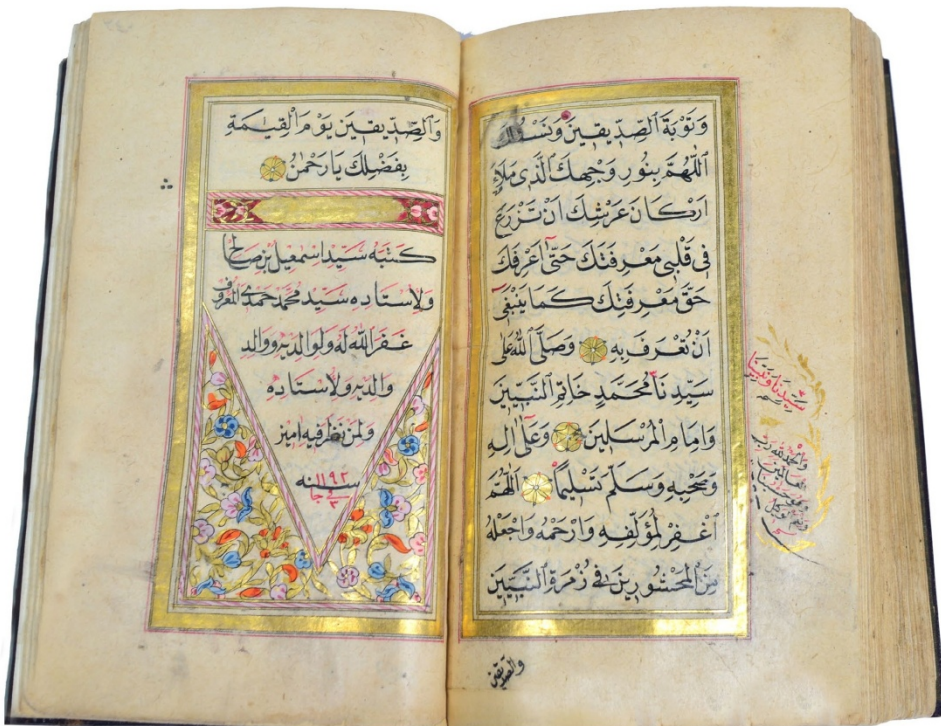 وَتَوْبَةَ الصِّدِّيقِينَ وَنَسْئَلُكَ
اَللّٰهُمَّ بِنُورِ وَجْهِكَ الَّذِى مَلَاءَ
اَرْكَانَ عَرْشِكَ اَنْ تَزْرَعَ
فِى قَلْبِى مَعْرِفَتَكَ حَتّٰى اَعْرِفَكَ
حَقَّ مَعْرِفَتِكَ كَمَا يَنْبَغِى
اَنْ تُعْرَفَ بِهِ وَصَلَّى اللّٰهُ عَلٰى
سَيِّدِنَا مُحَمَّدٍ خَاتِمِ النَّبِيِّينَ
وَاِمَامِ الْمُرْسَلِينَ وَعَلٰى اٰلِهِ
وَصَحْبِهِ وَسَلِّمْ تَسْلِيمًا اَللّٰهُمَّ
اغْفِرْ لِمُؤَلِّفِهِ وَارْحَمْهُ وَاجْعَلْهُ
مِنَ الْمَحْشُورِينَ فِى زُمْرَةِ النَّبِيِّينَ
والصديقين
سَيِّدِنَا وَنَبِيِّنَا
وَالصِّدِّيقِينَ يَوْمَ الْقِيٰمَةِ
بِفَضْلِكَ يَا رَحْمٰنُ
كتبه سيد اسمعيل بن صالح
ولاستاده سيد محمد حمدى المعروف
غفر الله له ولوالديه ووالد
والديه ولاستاده
ولمن نظر فيه امين
سنه ١١٩٢